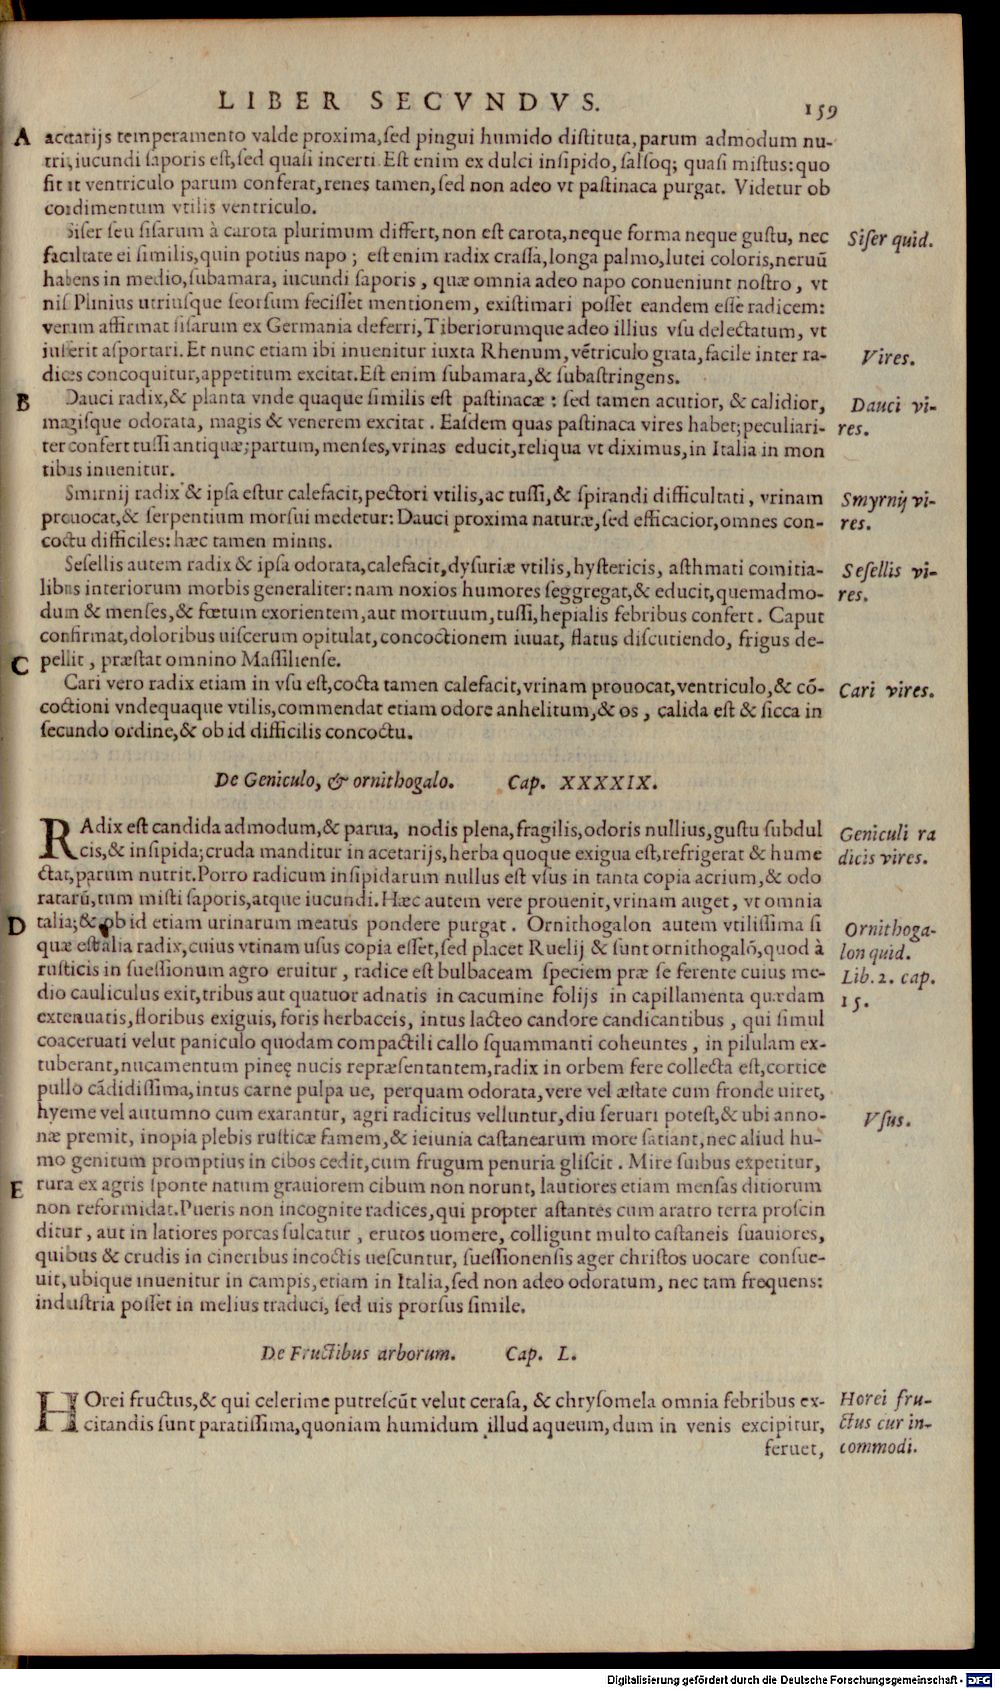 LIBER SECVNDVS. 159
A acetarijs temperamento valde proxima, sed pingui humido distituta, parum admodum nu-
trit; iucundi saporis est, sed quasi incerti. Est enim ex dulci insipido, salsoq; quasi mistus: quo
fit it ventriculo parum conferat, renes tamen, sed non adeo vt pastinaca purgat. Videtur ob
condimentum vtilis ventriculo.
Siser seu sisarum à carota plurimum differt, non est carota, neque forma neque gustu, nec
Siser quid.
facultate ei similis, quin potius napo; est enim radix crassa, longa palmo, lutei coloris, neruũ
habens in medio, subamara, iucundi saporis, quæ omnia adeo napo conueniunt nostro, vt
nisi Plinius utriusque seorsum fecisset mentionem, existimari posset eandem esse radicem:
verum affirmat sisarum ex Germania deferri, Tiberiorumque adeo illius vsu delectatum, vt
iusserit asportari. Et nunc etiam ibi inuenitur iuxta Rhenum, vẽtriculo grata, facile inter ra-
Vires.
dices concoquitur, appetitum excitat. Est enim subamara, & subastringens.
B Dauci radix, & planta vnde quaque similis est pastinacæ: sed tamen acutior, & calidior,
Dauci vi-
magisque odorata, magis & venerem excitat. Easdem quas pastinaca vires habet; peculiari-
res.
ter confert tussi antiquæ; partum, menses, vrinas educit, reliqua vt diximus, in Italia in mon
tibus inuenitur.
Smirnij radix & ipsa estur calefacit, pectori vtilis, ac tussi, & spirandi difficultati, vrinam
Smyrnij vi-
prouocat, & serpentium morsui medetur: Dauci proxima naturæ, sed efficacior, omnes con-
res.
coctu difficiles: hæc tamen minus.
Sesellis autem radix & ipsa odorata, calefacit, dysuriæ vtilis, hystericis, asthmati comitia-
Sesellis vi-
libus interiorum morbis generaliter: nam noxios humores seggregat, & educit, quemadmo-
res.
dum & menses, & fœtum exorientem, aut mortuum, tussi, hepialis febribus confert. Caput
confirmat, doloribus uiscerum opitulat, concoctionem iuuat, flatus discutiendo, frigus de-
C pellit, præstat omnino Massiliense.
Cari vero radix etiam in vsu est, cocta tamen calefacit, vrinam prouocat, ventriculo, & cõ-
Cari vires.
coctioni vndequaque vtilis, commendat etiam odore anhelitum, & os, calida est & sicca in
secundo ordine, & ob id difficilis concoctu.
De Geniculo, & ornithogalo. Cap. XXXXIX.
RAdix est candida admodum, & parua, nodis plena, fragilis, odoris nullius, gustu subdul
Geniculi ra
cis, & insipida; cruda manditur in acetarijs, herba quoque exigua est, refrigerat & hume
dicis vires.
ctat, parum nutrit. Porro radicum insipidarum nullus est vsus in tanta copia acrium, & odo
ratarũ, tum misti saporis, atque iucundi. Hæc autem vere prouenit, vrinam auget, vt omnia
D talia; & ob id etiam urinarum meatus pondere purgat. Ornithogalon autem vtilissima si
Ornithoga-
quæ est alia radix, cuius vtinam usus copia esset, sed placet Ruelij & sunt ornithogalõ, quod à
lon quid.
rusticis in suessionum agro eruitur, radice est bulbaceam speciem præ se ferente cuius me-
Lib. 2. cap.
dio cauliculus exit, tribus aut quatuor adnatis in cacumine folijs in capillamenta quædam
15.
extenuatis, floribus exiguis, foris herbaceis, intus lacteo candore candicantibus, qui simul
coaceruati velut paniculo quodam compactili callo squammanti coheuntes, in pilulam ex-
tuberant, nucamentum pineę nucis repræsentantem, radix in orbem fere collecta est, cortice
pullo cãdidissima, intus carne pulpa ue, perquam odorata, vere vel æstate cum fronde uiret,
hyeme vel autumno cum exarantur, agri radicitus velluntur, diu seruari potest, & ubi anno-
Vsus.
næ premit, inopia plebis rusticæ famem, & ieiunia castanearum more satiant, nec aliud hu-
mo genitum promptius in cibos cedit, cum frugum penuria gliscit. Mire suibus expetitur,
E rura ex agris sponte natum grauiorem cibum non norunt, lautiores etiam mensas ditiorum
non reformidat. Pueris non incognite radices, qui propter astantes cum aratro terra proscin
ditur, aut in latiores porcas sulcatur, erutos uomere, colligunt multo castaneis suauiores,
quibus & crudis in cineribus incoctis uescuntur, suessionensis ager christos uocare consue-
uit, ubique inuenitur in campis, etiam in Italia, sed non adeo odoratum, nec tam frequens:
industria posset in melius traduci, sed uis prorsus simile.
De Fructibus arborum. Cap. L.
HOrei fructus, & qui celerime putrescũt velut cerasa, & chrysomela omnia febribus ex-
Horei fru-
citandis sunt paratissima, quoniam humidum illud aqueum, dum in venis excipitur,
ctus cur in-
feruet,
commodi.
Digitalisierung gefördert durch die Deutsche Forschungsgemeinschaft - DFG